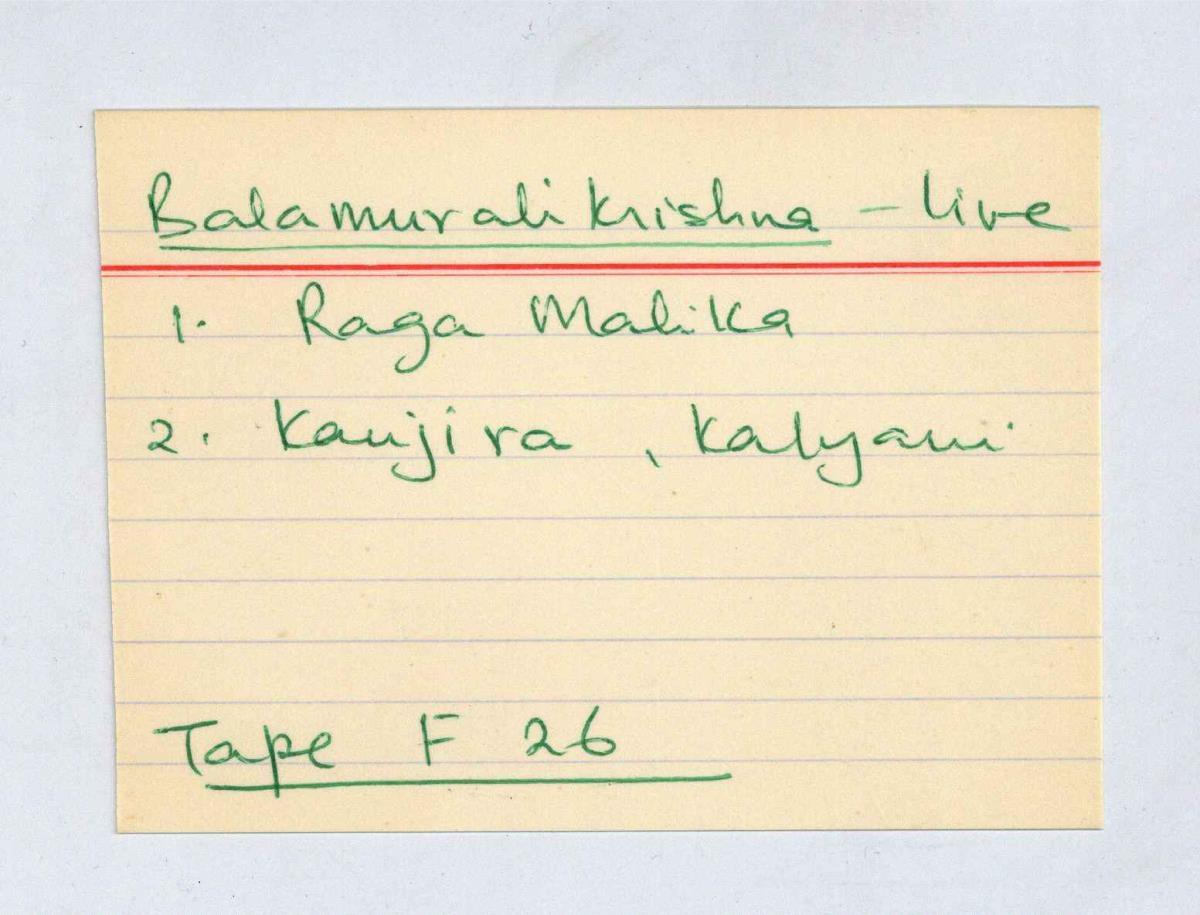 Balamurali Krishna - live
1. Raga Malika
2. Kanjira, Kalyani
Tape F 26